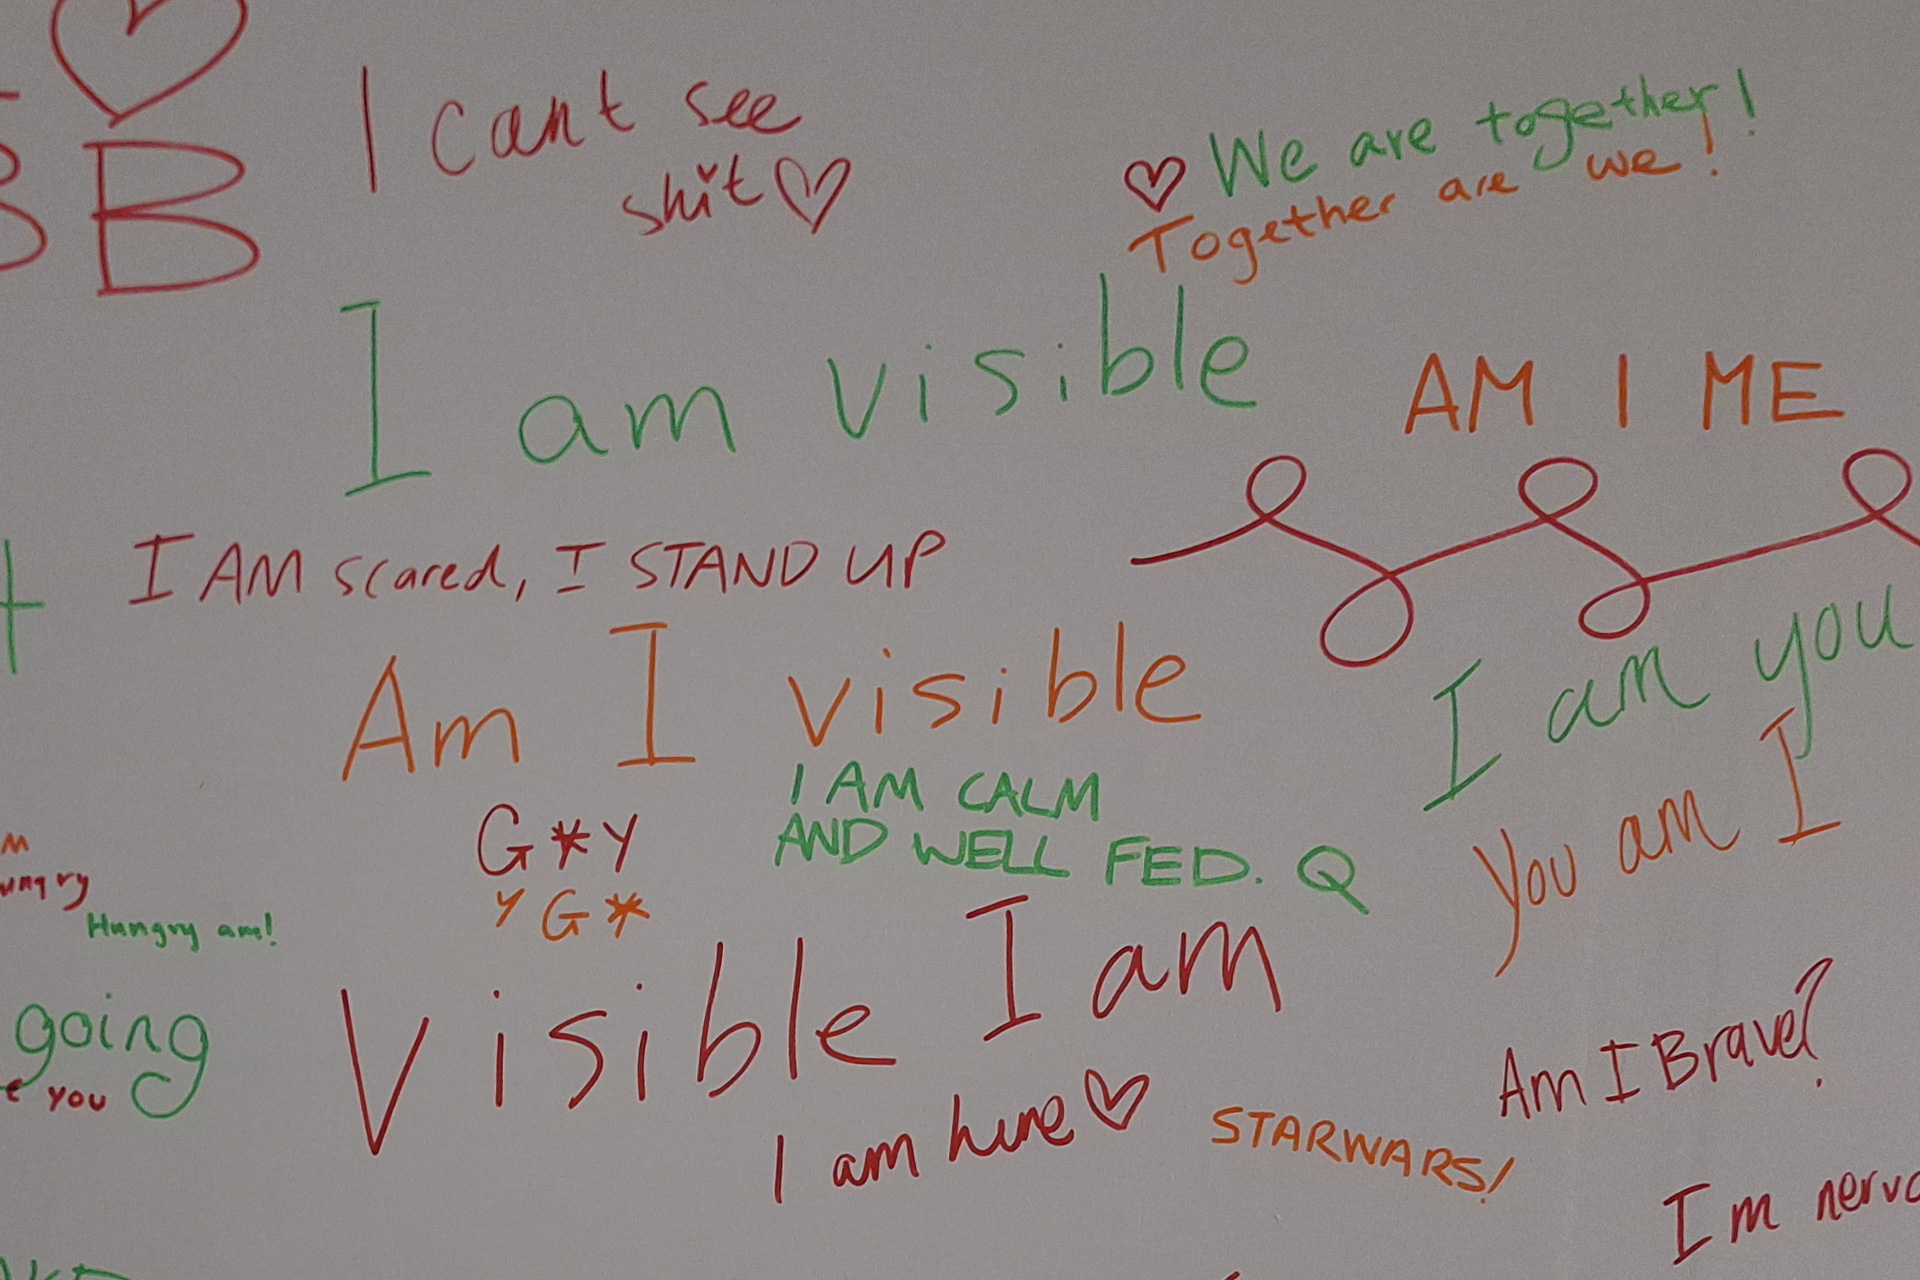 B
I cant see
shit
We are together!
Together are we!
I am visible
AM I ME
I AM scared, I STAND UP
Am I visible
I am you
You am I
I AM CALM
AND WELL FED. Q
G*Y
Y G*
Hungry am!
Visible I am
going
you
Am I Brave?
I am here
STARWARS!
Im